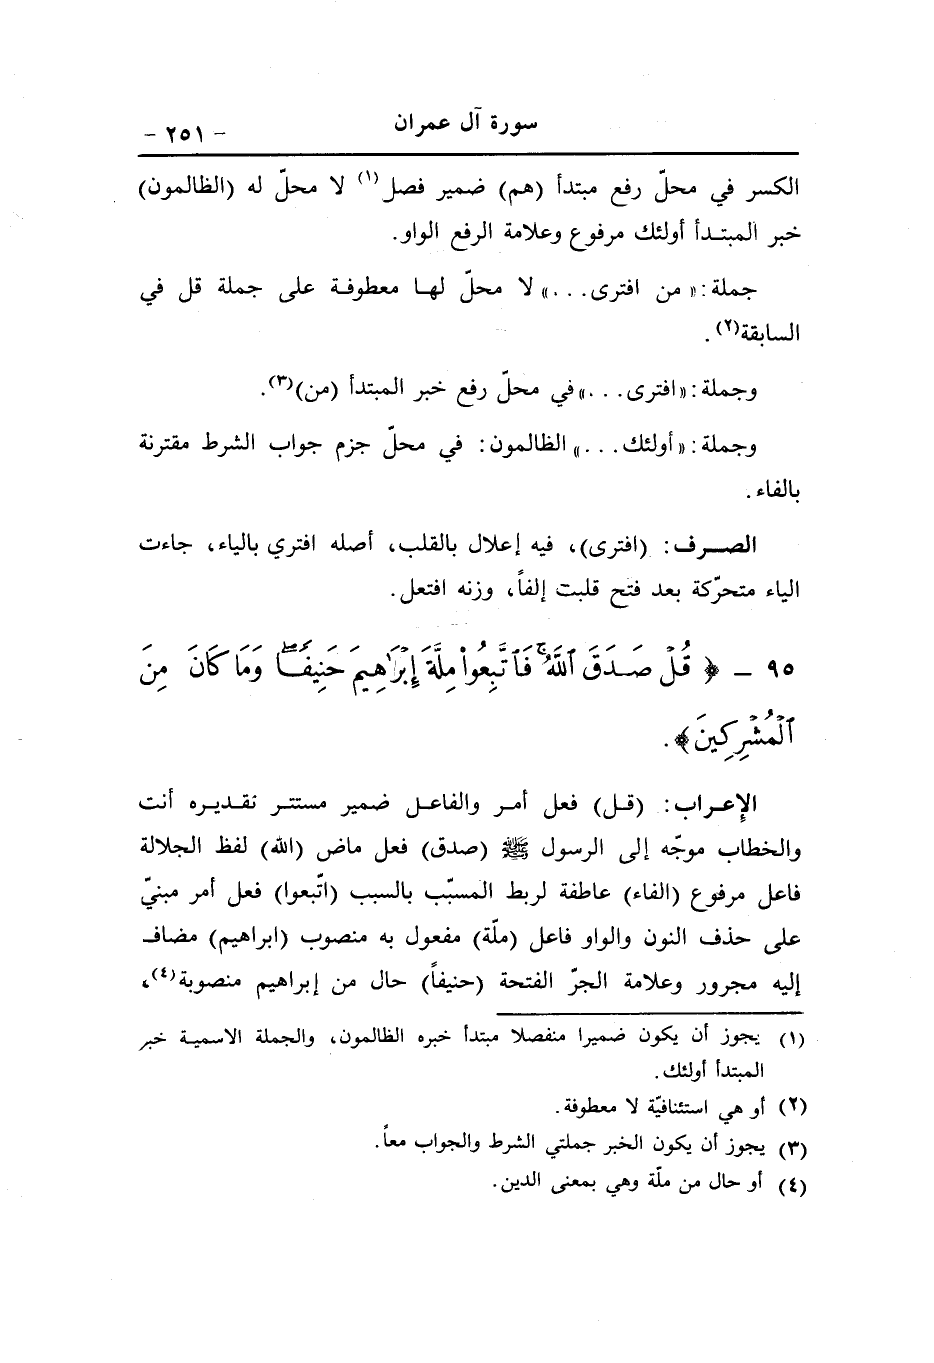 سورة آل عمران
- ٢٥١ -
الكسر في محلّ رفع مبتدأ (هم) ضمير فصل(١) لا محلّ له (الظالمون)
خبر المبتدأ أولئك مرفوع وعلامة الرفع الواو.
جملة: «من افترى...» لا محلّ لها معطوفة على جملة قل في
السابقة(٢).
وجملة: «افترى...» في محلّ رفع خبر المبتدأ (من)(٣).
وجملة: «أولئك...» الظالمون: في محلّ جزم جواب الشرط مقترنة
بالفاء.
الصرف: (افترى)، فيه إعلال بالقلب، أصله افتري بالياء، جاءت
الياء متحرّكة بعد فتح قلبت إلفاً، وزنه افتعل.
٩٥ - ﴿ قُلْ صَدَقَ ٱللَّهُ ۗ فَٱتَّبِعُوا۟ مِلَّةَ إِبْرَٰهِيمَ حَنِيفًا ۖ وَمَا كَانَ مِنَ
ٱلْمُشْرِكِينَ﴾.
الإعراب: (قل) فعل أمر والفاعل ضمير مستتر تقديره أنت
والخطاب موجّه إلى الرسول ﷺ (صدق) فعل ماض (الله) لفظ الجلالة
فاعل مرفوع (الفاء) عاطفة لربط المسبّب بالسبب (اتّبعوا) فعل أمر مبنيّ
على حذف النون والواو فاعل (ملّة) مفعول به منصوب (ابراهيم) مضاف
إليه مجرور وعلامة الجرّ الفتحة (حنيفاً) حال من إبراهيم منصوبة(٤)،
(١) يجوز أن يكون ضميرا منفصلا مبتدأ خبره الظالمون، والجملة الاسمية خبر
المبتدأ أولئك.
(٢) أو هي استئنافيّة لا معطوفة.
(٣) يجوز أن يكون الخبر جملتي الشرط والجواب معاً.
(٤) أو حال من ملّة وهي بمعنى الدين.